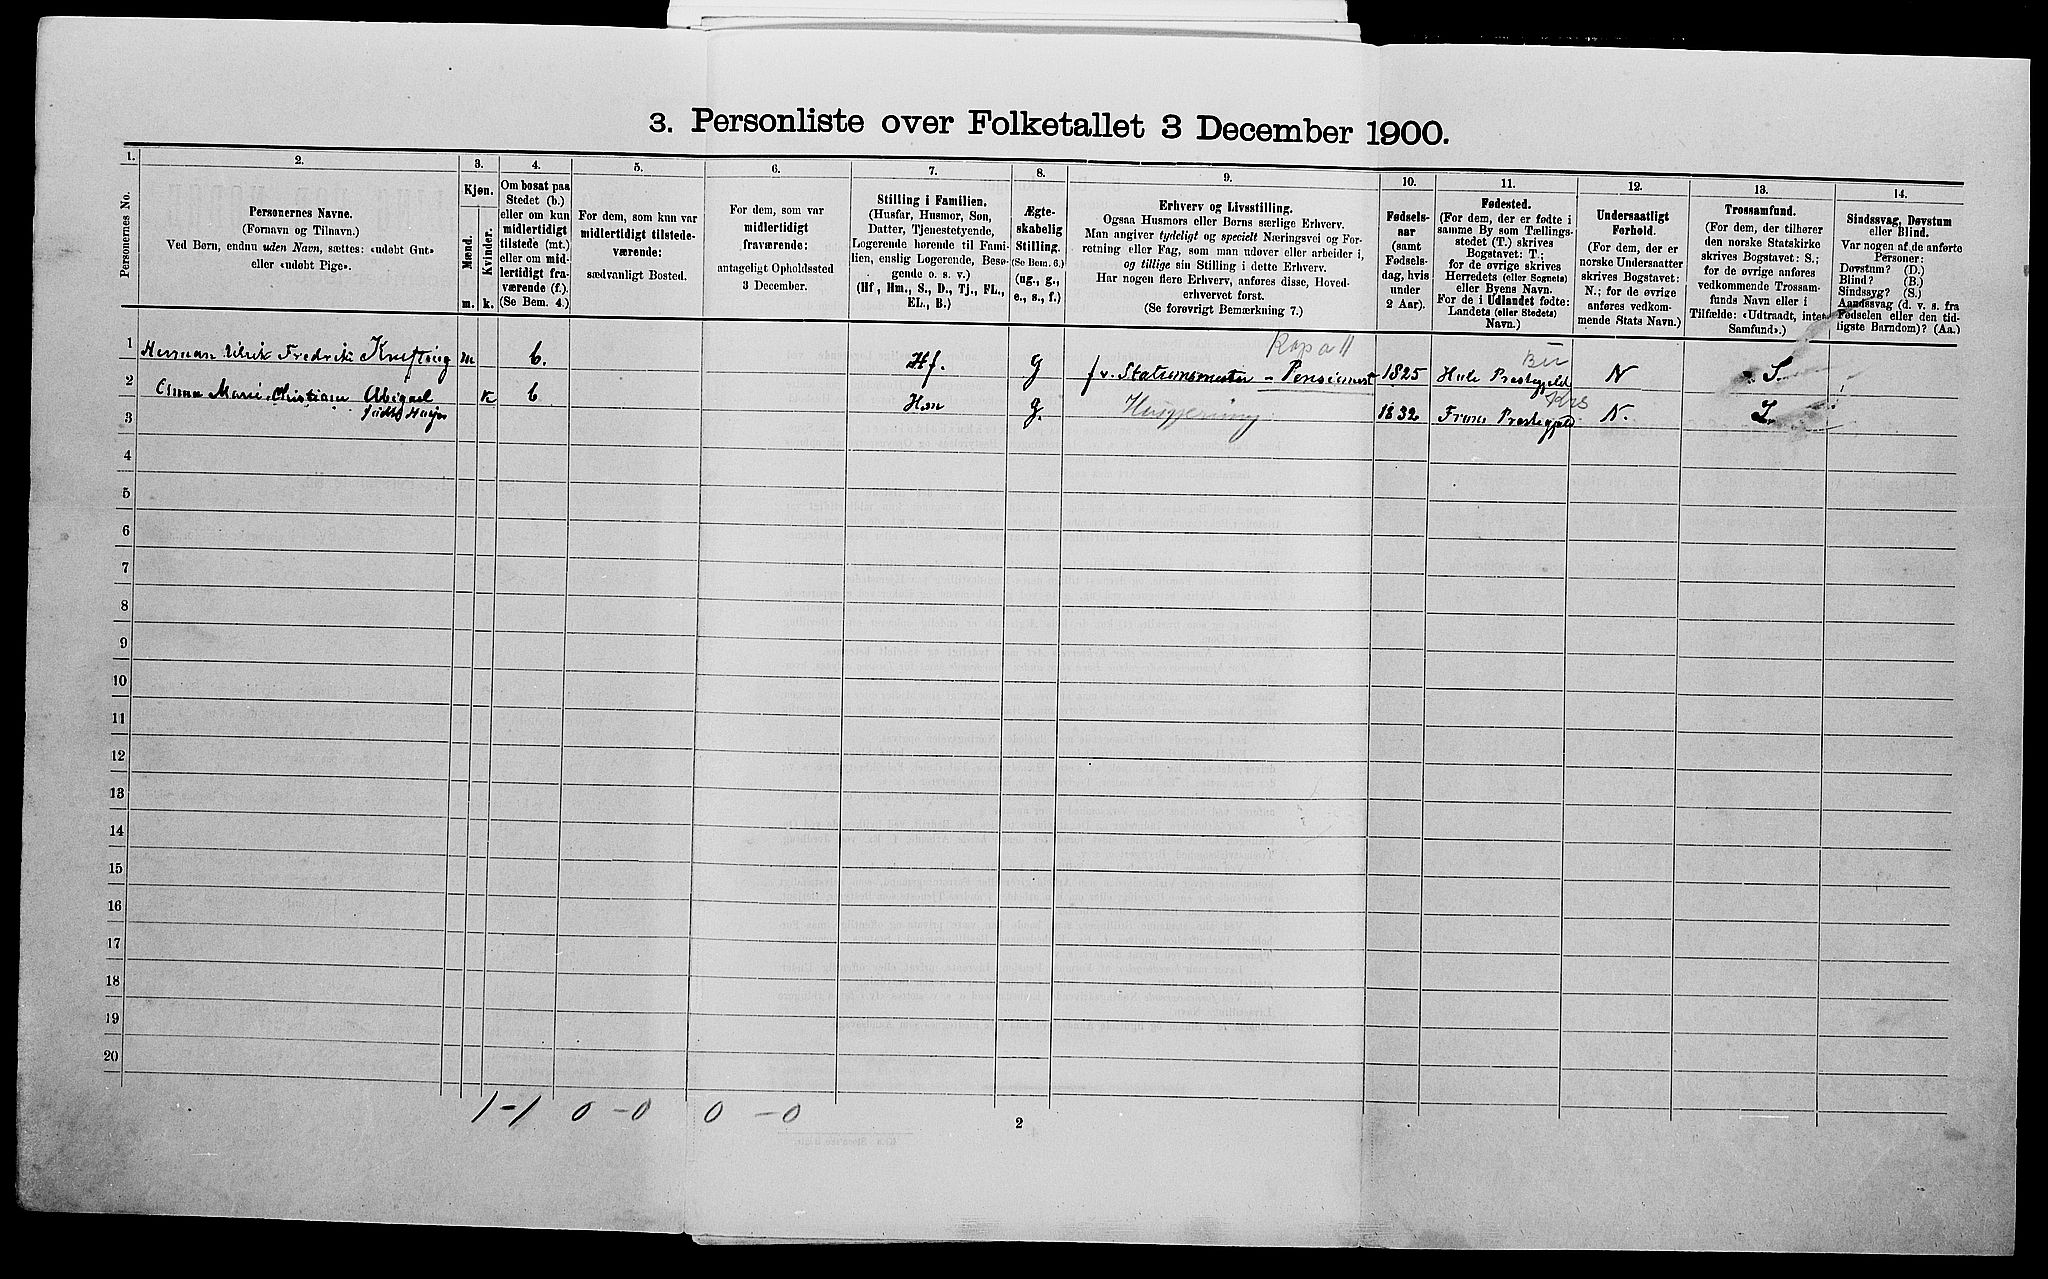 3. Personliste over Folketallet 3 December 1900.
1.
2.
3.
4.
5.
6.
7.
8.
9.
10.
11.
12.
13.
14.
Personernes No.
Personernes Navne.
(Fornavn og Tilnavn.)
Ved Børn, endnu uden Navn, sættes: «udøbt Gut»
eller «udøbt Pige».
Kjøn.
Mænd.
Kvinder.
m.
k.
Om bosat paa
Stedet (b.)
eller om kun
midlertidigt
tilstede (mt.)
eller om mid-
lertidigt fra-
værende (f.).
(Se Bem. 4.)
For dem, som kun var
midlertidigt tilstede-
værende:
sædvanligt Bosted.
For dem, som var
midlertidigt
fraværende:
antageligt Opholdssted
3 December.
Stilling i Familien.
(Husfar, Husmor, Søn,
Datter, Tjenestetyende,
Logerende hørende til Fami-
lien, enslig Logerende, Besø-
gende o. s. v.)
(Hf, Hm., S., D., Tj., FL.,
EL., B.)
Ægte-
skabelig
Stilling.
(Se Bem. 6.)
(ug., g.,
e., s., f.)
Erhverv og Livsstilling.
Ogsaa Husmors eller Børns særlige Erhverv.
Man angiver tydeligt og specielt Næringsvei og For-
retning eller Fag, som man udøver eller arbeider i,
og tillige sin Stilling i dette Erhverv.
Har nogen flere Erhverv, anføres disse, Hoved-
erhvervet først.
(Se forøvrigt Bemærkning 7.)
Fødsels-
aar
(samt
Fødsels-
dag, hvis
under
2 Aar).
Fødested.
(For dem, der er fødte i
samme By som Tællings-
stedet (T.) skrives
Bogstavet: T.;
for de øvrige skrives
Herredets (eller Sognets)
eller Byens Navn.
For de i Udlandet fødte:
Landets (eller Stedets)
Navn.)
Undersaatligt
Forhold.
(For dem, der er
norske Undersaatter
skrives Bogstavet:
N.; for de øvrige
anføres vedkom-
mende Stats Navn.)
Trossamfund.
(For dem, der tilhører
den norske Statskirke
skrives Bogstavet: S.;
for de øvrige anføres
vedkommende Trossam-
funds Navn eller i
Tilfælde: «Udtraadt, intet
Samfund».)
Sindssvag, Døvstum
eller Blind.
Var nogen af de anførte
Personer:
Døvstum? (D.)
Blind? (B.)
Sindssyg? (S.)
Aandssvag (d. v. s. fra
Fødselen eller den tid-
ligste Barndom)? (Aa.)
1 Herman Ulrik Fredrik m b. Hf. g f.v. Stationsmester - Pensionist 1825 Hole Prestegjeld N S.
2 Anna Marie Christiane Abigael k b Hm g. Husgjerning 1832 Prestegjeld N.
født
Bu
Krs
3
4
5
6
7
8
9
10
11
12
13
14
15
16
17
18
19
20
1-1 0-0 0-0
2